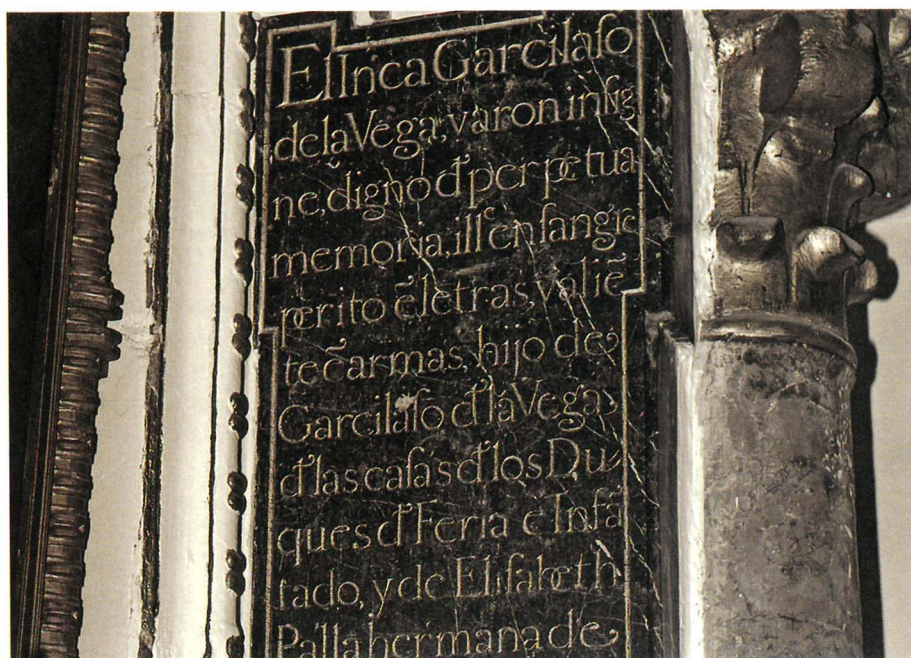 El Inca Garcilaſo
de la Vega, varon inſig
ne, digno đ perpetua
memoria, illẽ en ſangre
perito ẽ letras, valiẽ
te ẽ armas, hijo de
Garcilaſo đ la Vega,
đ las caſas đ los Du
ques đ Feria e Infã
tado, y de Eliſabeth
Palla hermana de